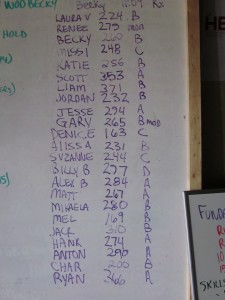 WOD BECKY Becky 4:09 Rx
LAURA V 224 B
HOLD RENEE 275 MOD
BECKY B
MISSI 248 C
KATIE 256 B
SCOTT 353 A
LIAM 371 B
JORDAN 232 B
JESSE 294 A
GARY 265 B MOD
DENICE 163 C
ALISSA 231 B
SUZANNE 244 C
BILLY B 297 D
ALEX B 284 A
MATT 267 A
MIHAELA 280 B
MEL 169 B
JACK 310 B
HANK 274 A
ANTON 290 A
CHAR 200 B
RYAN 366 A
FUND
SKILLS